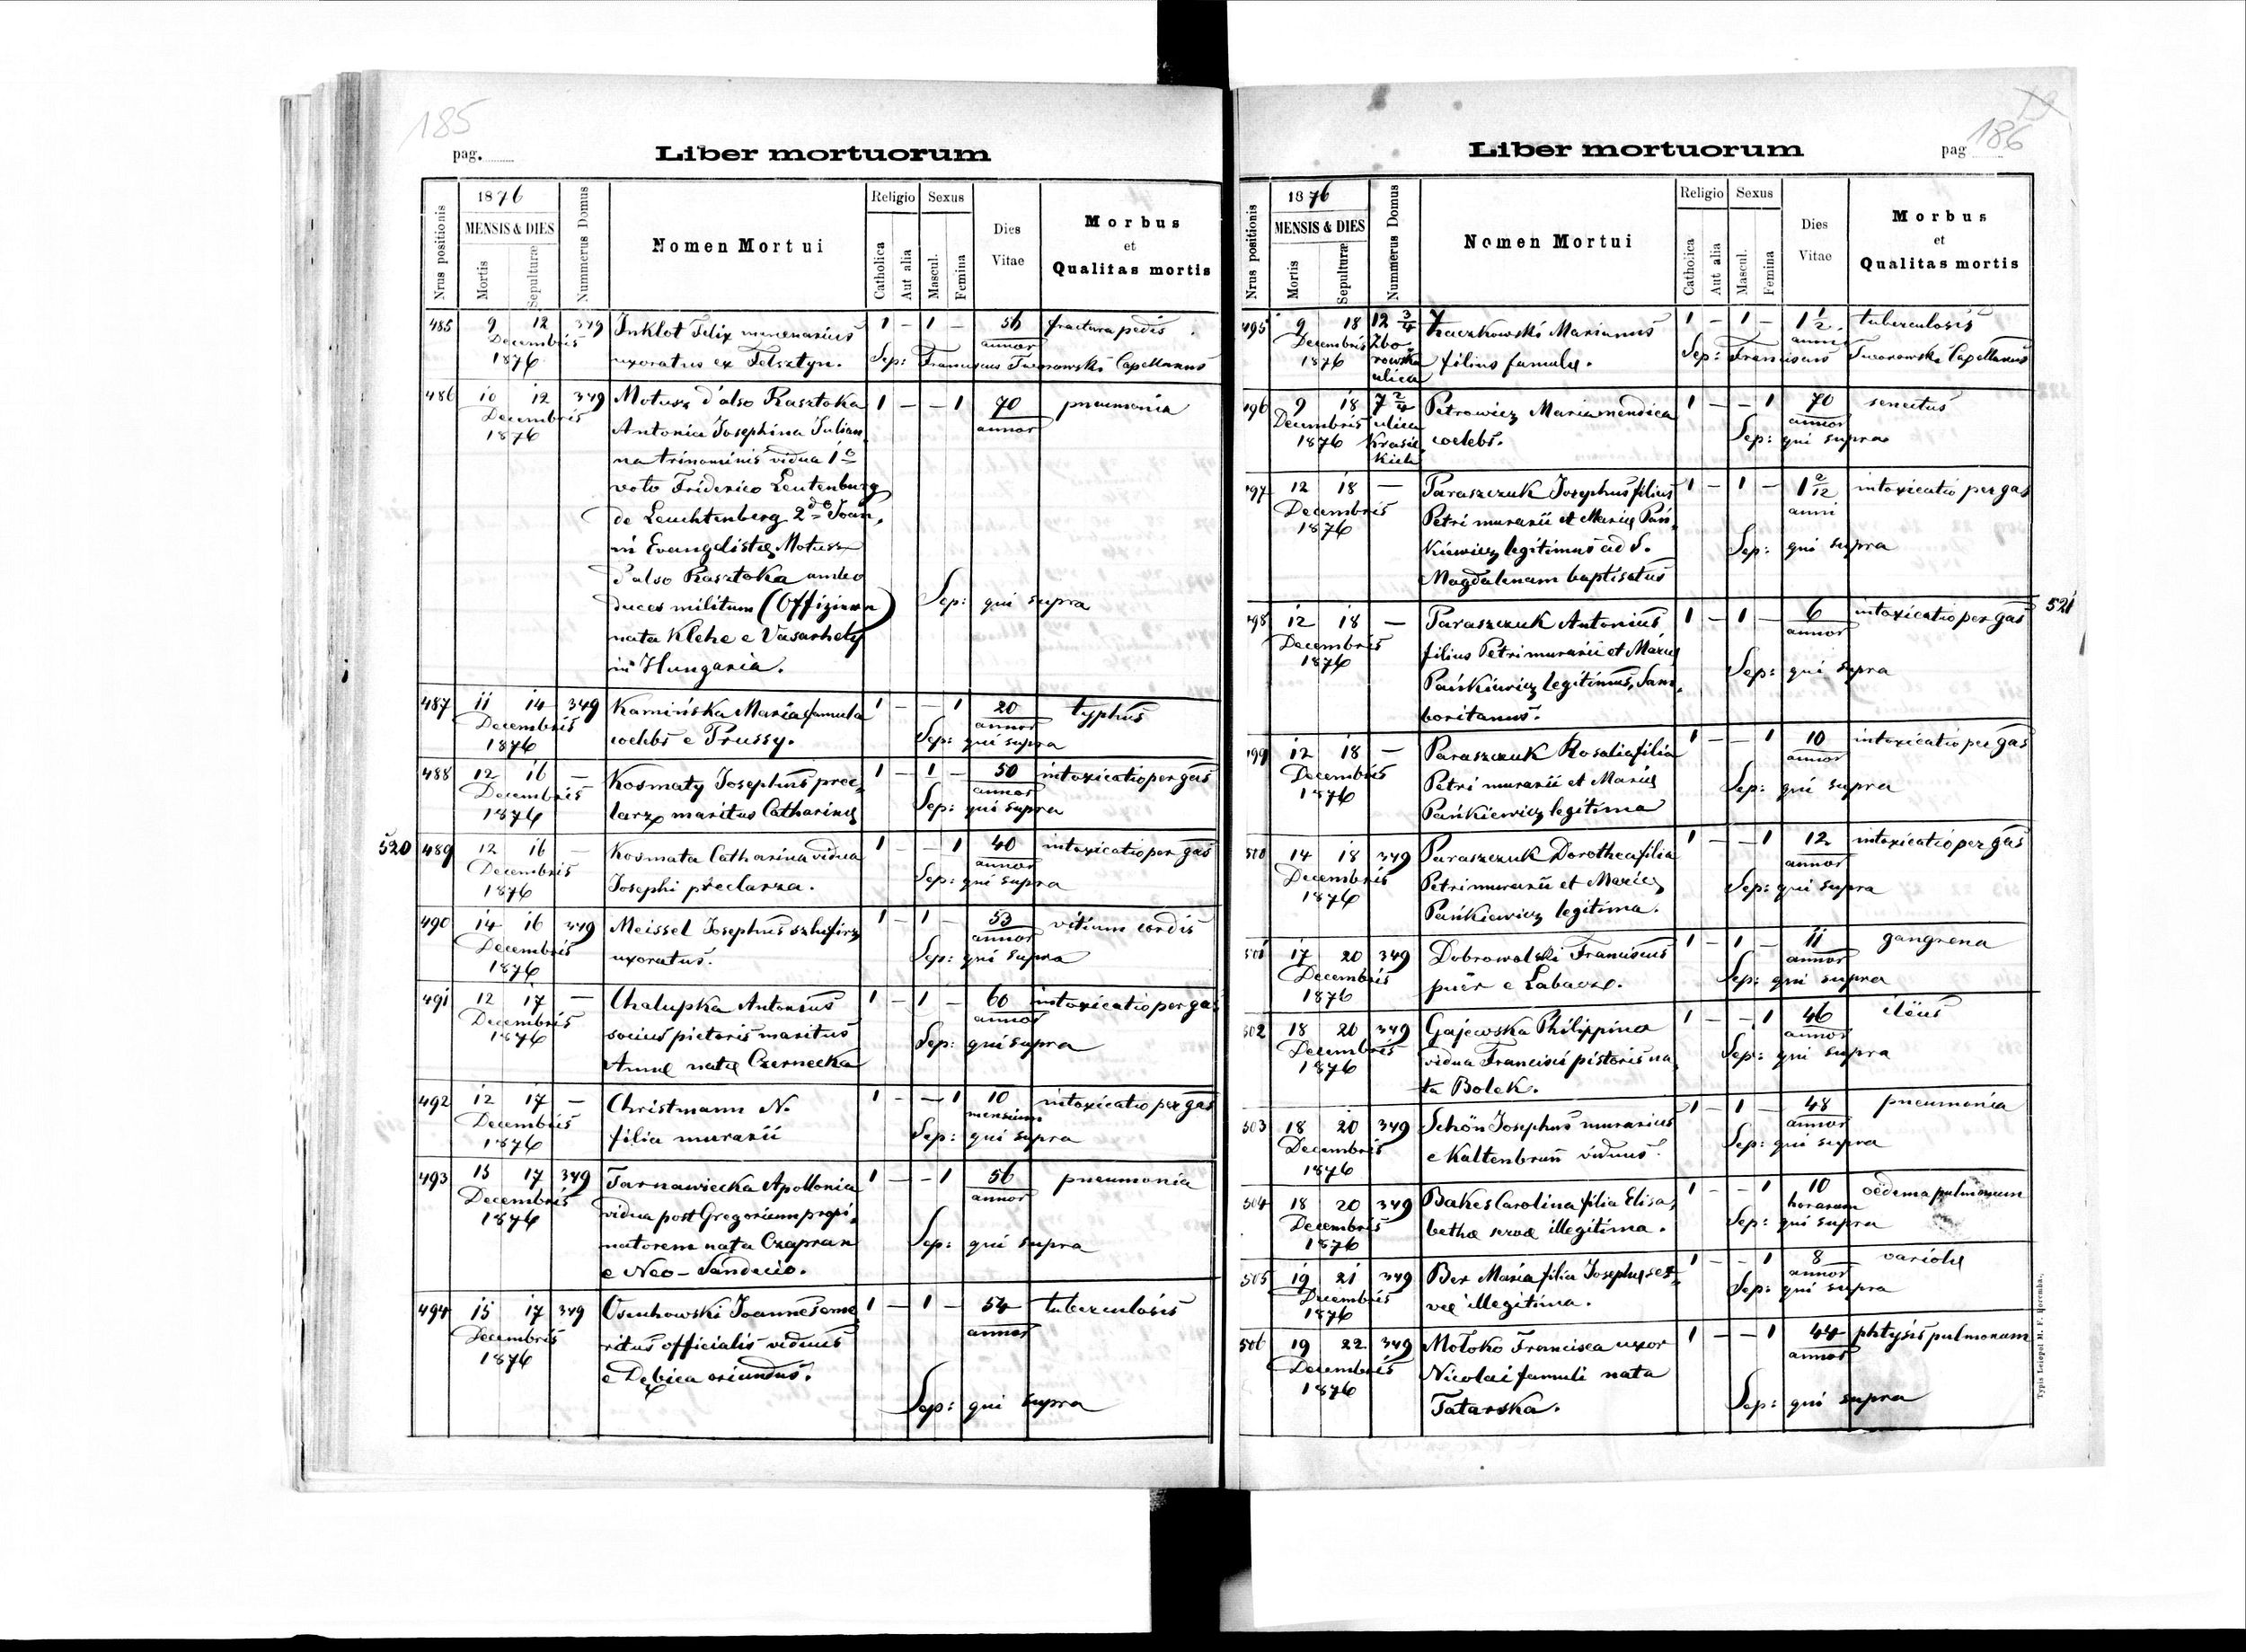 185
pag.
Liber mortuorum
Nrus positionis
1876
MENSIS & DIES
Mortis
Sepulturæ
Nummerus Domus
Nomen Mortui
Religio
Catholica
Aut alia
Sexus
Mascul.
Femina
Dies
Vitae
Morbus
et
Qualitas mortis
485 9 12 349 Inklot Felix mercenarius 1 – 1 – 56 fractura pedis.
Decembris annor
1876 uxoratus ex Felsztyn. Sep: Franciscus Capellanus
486 10 12 349 Motusz d'also Rasztoka 1 – – 1 70 pneumonia
Decembris Antonia Josephina Julian annor
1876
na trinominis vidua 1o
voto Friderico Leutenburg
de Leuchtenberg 2do Joan,
ni Evangelistæ Motusz
d'also Rasztoka ambo
duces militum (Offiziere) Sep: qui supra
nata Klehe e Vasarhely
in Hungaria.
487 11 14 349 Kamińska Maria famula 1 – – 1 20 typhus
Decembris annor
1876 coelebs e Prussy. Sep: qui supra
488 12 16 – Kosmaty Josephus prec, 1 – 1 – 50 intoxicatio per gas
Decembris annor
1876 larz maritus Catharinæ Sep: qui supra
520 489 12 16 – Kosmata Catharina vidua 1 – – 1 40 intoxicatio per gas
Decembris annor
1876 Josephi preclarza. Sep: qui supra
490 14 16 349 Meissel Josephus szlufirz 1 – 1 – 53 vitium cordis
Decembris annor
1876 uxoratus. Sep: qui supra
491 12 17 – Chalupka Antonius 1 – 1 – 60 intoxicatio per gas
Decembris socius pictoris maritus annor
1876 Annæ natæ Czernecka Sep: qui supra
492 12 17 – Christmann N. 1 – – 1 10 intoxicatio per gas
Decembris mensium
1876 filia murarii Sep: qui supra
493 15 17 349 Tarnawiecka Apollonia 1 – – 1 56 pneumonia
Decembris vidua post Gregorium propi, annor
1876 natorem nata Czapran Sep: qui supra
e Neo-Sandecio.
494 15 17 349 Osuchowski Joannes eme 1 – 1 – 54 tuberculosis
Decembris ritus officialis viduus annor
1876 e Dębica oriundus.
Sep: qui supra
186
Liber mortuorum
pag
Nrus positionis
1876
MENSIS & DIES
Mortis
Sepulturæ
Nummerus Domus
Nomen Mortui
Religio
Catholica
Aut alia
Sexus
Mascul.
Femina
Dies
Vitae
Morbus
et
Qualitas mortis
495 9 18 12 3/4 Marianus 1 – 1 – 1 1/2 tuberculosis
Decembris Zbo anni
1876 rowska filius famulæ. Sep: Franciscus Capellanus
ulica
496 9 18 7 2/4 Petrowicz Maria mendica 1 – – 1 70 senectus
Decembris ulica annor
1876 Krasic coelebs. Sep: qui supra
kich
497 12 18 – Paraszczuk Josephus filius 1 – 1 – 1 2/12 intoxicatio per gas
Decembris Petri murarii et Mariæ Pań, anni
1876 kiewicz legitimus ad S. Sep: qui supra
Magdalenam baptisatus
498 12 18 – Paraszczuk Antonius 1 – 1 – 6 intoxicatio per gas 521
Decembris filius Petri murarii et Mariæ annor
1876 Pańkiewicz legitimus, Sam, Sep: qui supra
boritanus.
499 12 18 – Paraszczuk Rosalia filia 1 – – 1 10 intoxicatio per gas
Decembris Petri murarii et Mariæ annor
1876 Pańkiewicz legitima Sep: qui supra
500 14 18 349 Paraszczuk Dorothea filia 1 – – 1 12 intoxicatio per gas
Decembris Petri murarii et Mariæ annor
1876 Pańkiewicz legitima. Sep: qui supra
501 17 20 349 Dobrowolski Franciscus 1 – 1 – 11 gangrena
Decembris annor
1876 puer e Labacz. Sep: qui supra
502 18 20 349 Gajewska Philippina 1 – – 1 46 ileus
Decembris vidua Francisci pistoris na annor
1876 ta Bolek. Sep: qui supra
503 18 20 349 Schön Josephus murarius 1 – 1 – 48 pneumonia
Decembris annor
1876 e Kaltenbrun viduus. Sep: qui supra
504 18 20 349 Bakes Carolina filia Elisa, 1 – – 1 10 oëdema pulmonum
Decembris horarum
1876 bethæ servæ illegitima. Sep: qui supra
505 19 21 349 Ber Maria filia Josephæ ser, 1 – – 1 8 variolæ
Decembris annor
1876 væ illegitima. Sep: qui supra
506 19 22 349 Mołoko Francisca uxor 1 – – 1 44 phtysis pulmonum
Decembris Nicolai famuli nata annor
1876 Tatarska. Sep: qui supra
Typis Leopol M. F. Poremba.